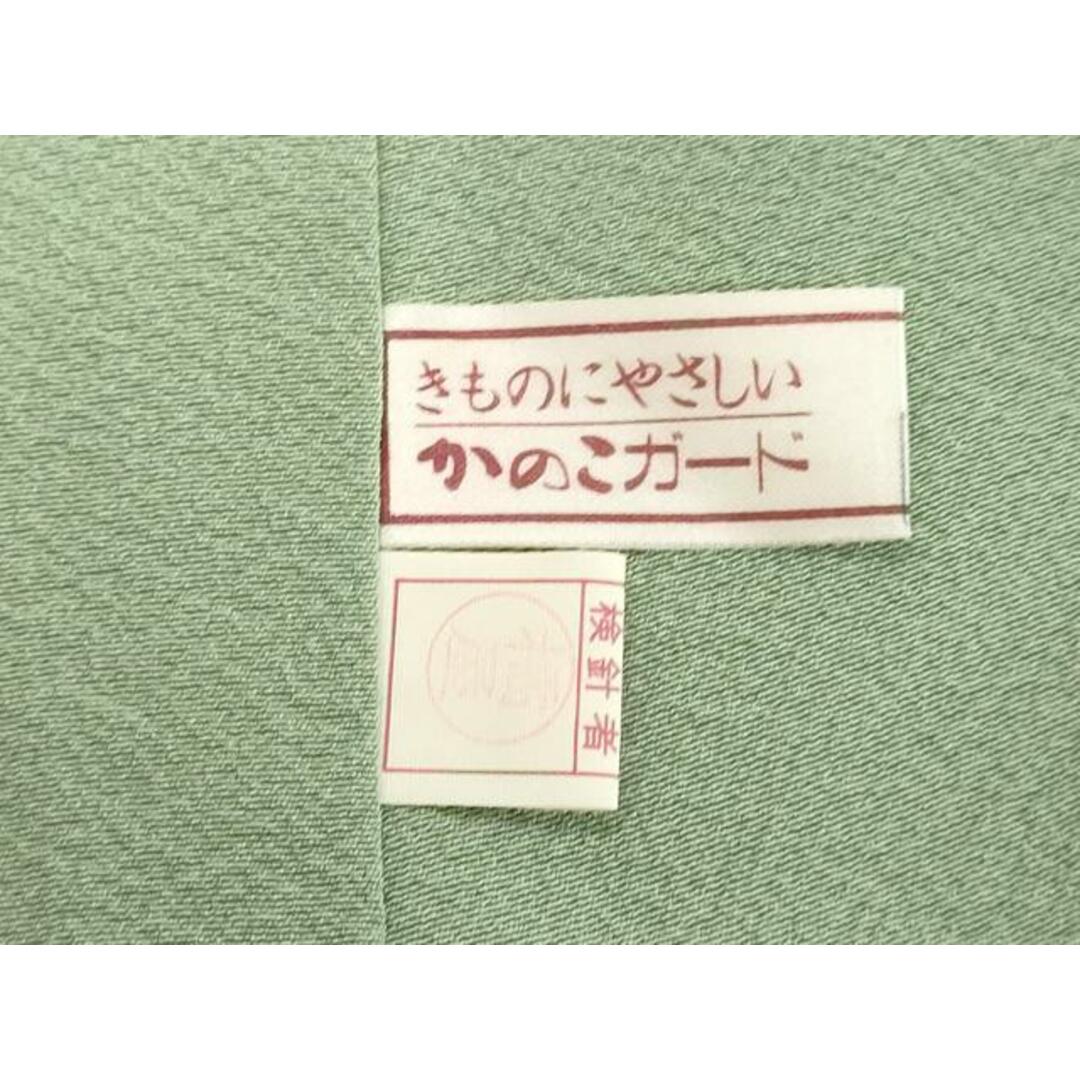 きものにやさしい
かのこガード
検針者